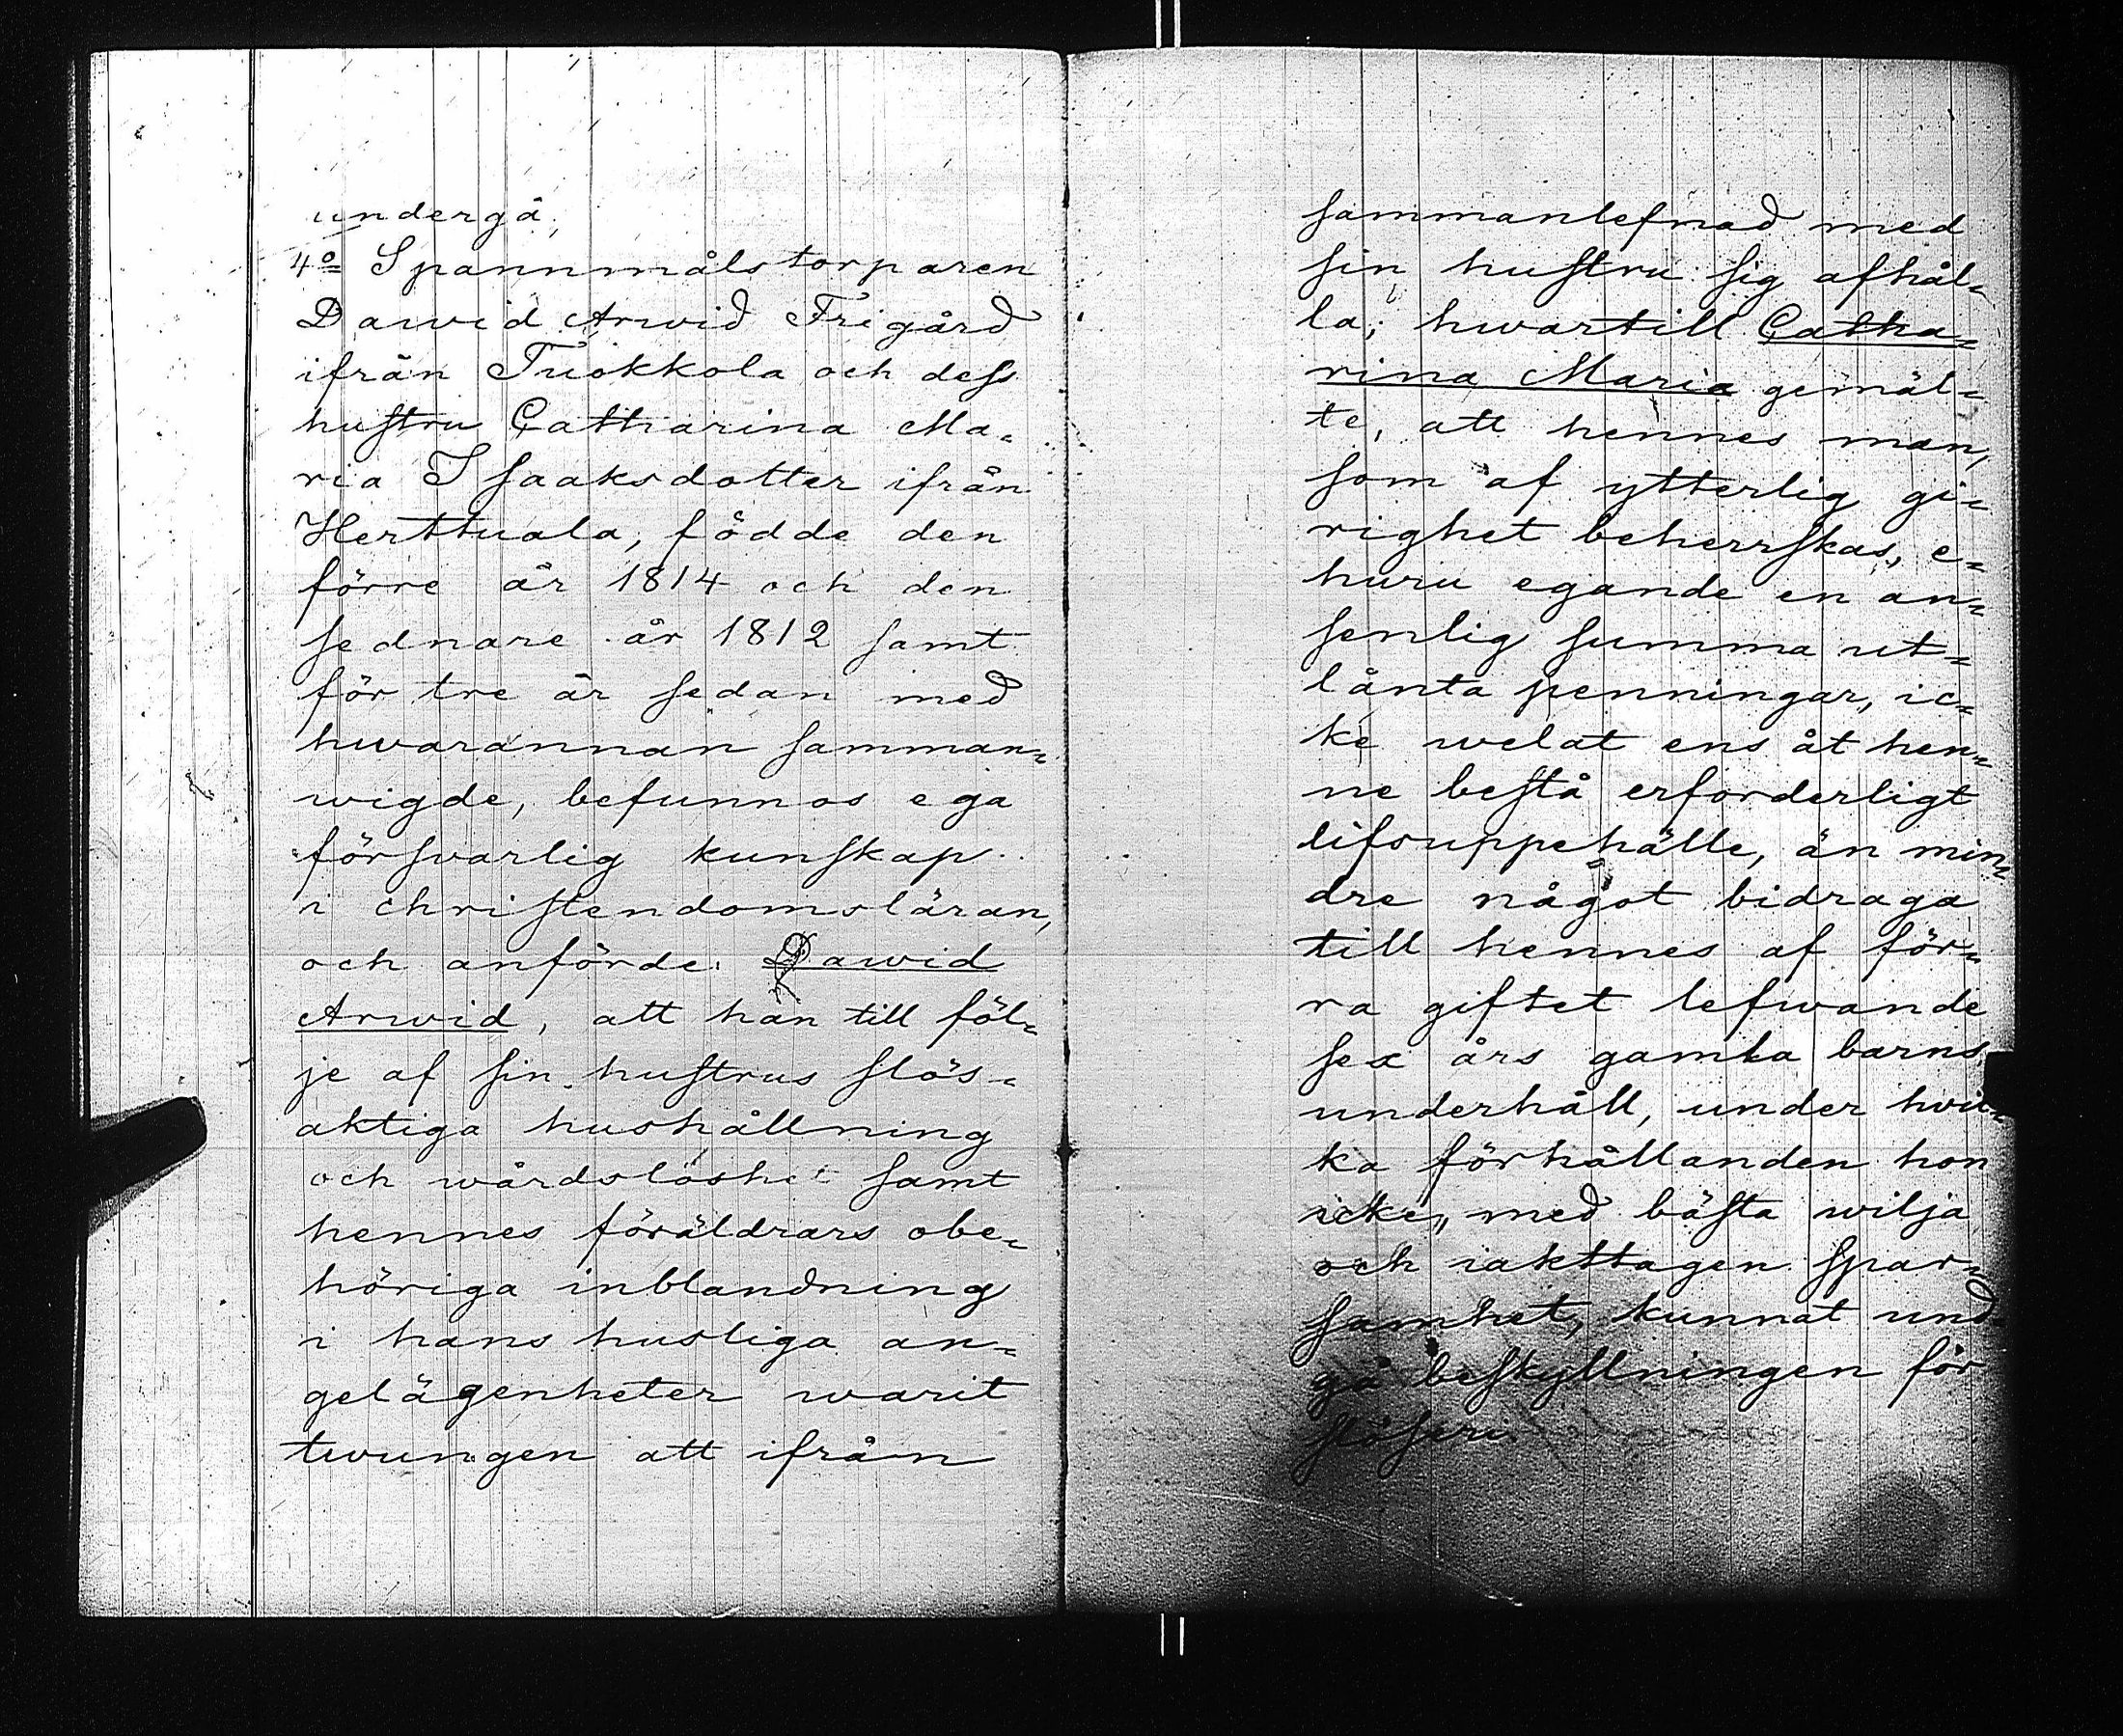 undergå.
4o Spannmålstorparen
Dawid Arwid Frigård
ifrån Tuokkola och dess
hustru Catharina Ma=
ria Isaaksdotter ifrån
Herttuala, födde den
förre år 1814 och den
sednare år 1812 samt
för tre år sedan med
hwarannan samman=
wigde, befunnos ega
försvarlig kunskap
i christendomsläran,
och anförde: Dawid
Arwid, att han till föl=
je af sin hustrus slös=
aktiga hushållning
och wårdslöshet samt
hennes föräldrars obe=
höriga inblandning
i hans husliga an=
gelägenheter warit
twungen att ifrån
sammanlefnad med
sin hustru sig afhål=
la; hwartill Catha=
rina Maria gemäl=
te, att hennes man,
som af ytterlig gi=
righet beherrskas, e=
huru egande en an=
senlig summa ut=
lånta penningar, ic=
ke welat ens åt hen=
ne bestå erforderligt
lifsuppehälle, än min=
dre något bidraga
till hennes af för=
ra giftet lefwande
sex års gamla barns
underhåll, under hwil=
ka förhållanden hon
icke, med bästa wilja
och iakttagen spar=
samhet, kunnat und=
gå beskyllningen för
slöseri.